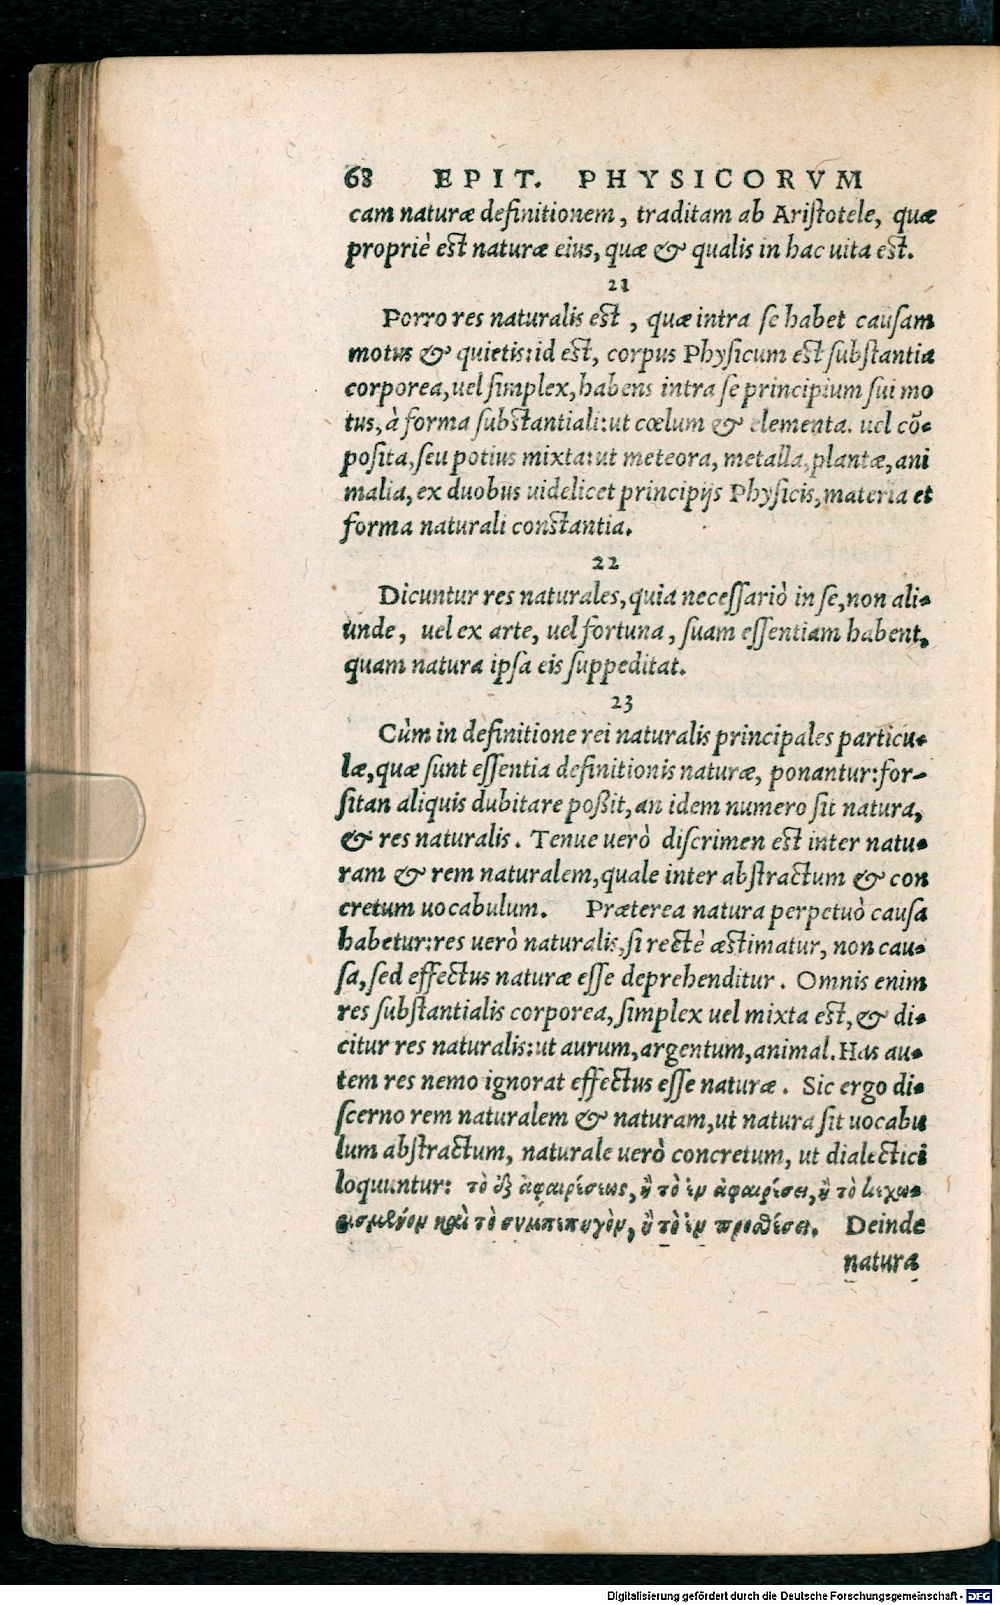 68 EPIT. PHYSICORVM
cam naturæ definitionem, traditam ab Aristotele, quæ
propriè est naturæ eius, quæ & qualis in hac uita est.
21
Porro res naturalis est, quæ intra se habet causam
motus & quietis: id est, corpus Physicum est substantia
corporea, uel simplex, habens intra se principium sui mo
tus, à forma substantiali: ut cœlum & elementa. uel cõ-
posita, seu potius mixta: ut meteora, metalla, plantæ, ani
malia, ex duobus uidelicet principijs Physicis, materia et
forma naturali constantia.
22
Dicuntur res naturales, quia necessariò in se, non ali-
unde, uel ex arte, uel fortuna, suam essentiam habent,
quam natura ipsa eis suppeditat.
23
Cùm in definitione rei naturalis principales particu-
læ, quæ sunt essentia definitionis naturæ, ponantur: for-
sitan aliquis dubitare poßit, an idem numero sit natura,
& res naturalis. Tenue uerò discrimen est inter natu-
ram & rem naturalem, quale inter abstractum & con
cretum uocabulum. Præterea natura perpetuò causa
habetur: res uerò naturalis, si rectè æstimatur, non cau-
sa, sed effectus naturæ esse deprehenditur. Omnis enim
res substantialis corporea, simplex uel mixta est, & di-
citur res naturalis: ut aurum, argentum, animal. Has au-
tem res nemo ignorat effectus esse naturæ. Sic ergo di-
scerno rem naturalem & naturam, ut natura sit uocabu
lum abstractum, naturale uerò concretum, ut dialectici
loquuntur: τὸ ἐξ ἀφαιρέσεως, ἢ τὸ ἐν ἀφαιρέσει, ἢ τὸ
καὶ τὸ ἢ τὸ ἐν προσθέσει. Deinde
natura
Digitalisierung gefördert durch die Deutsche Forschungsgemeinschaft - DFG